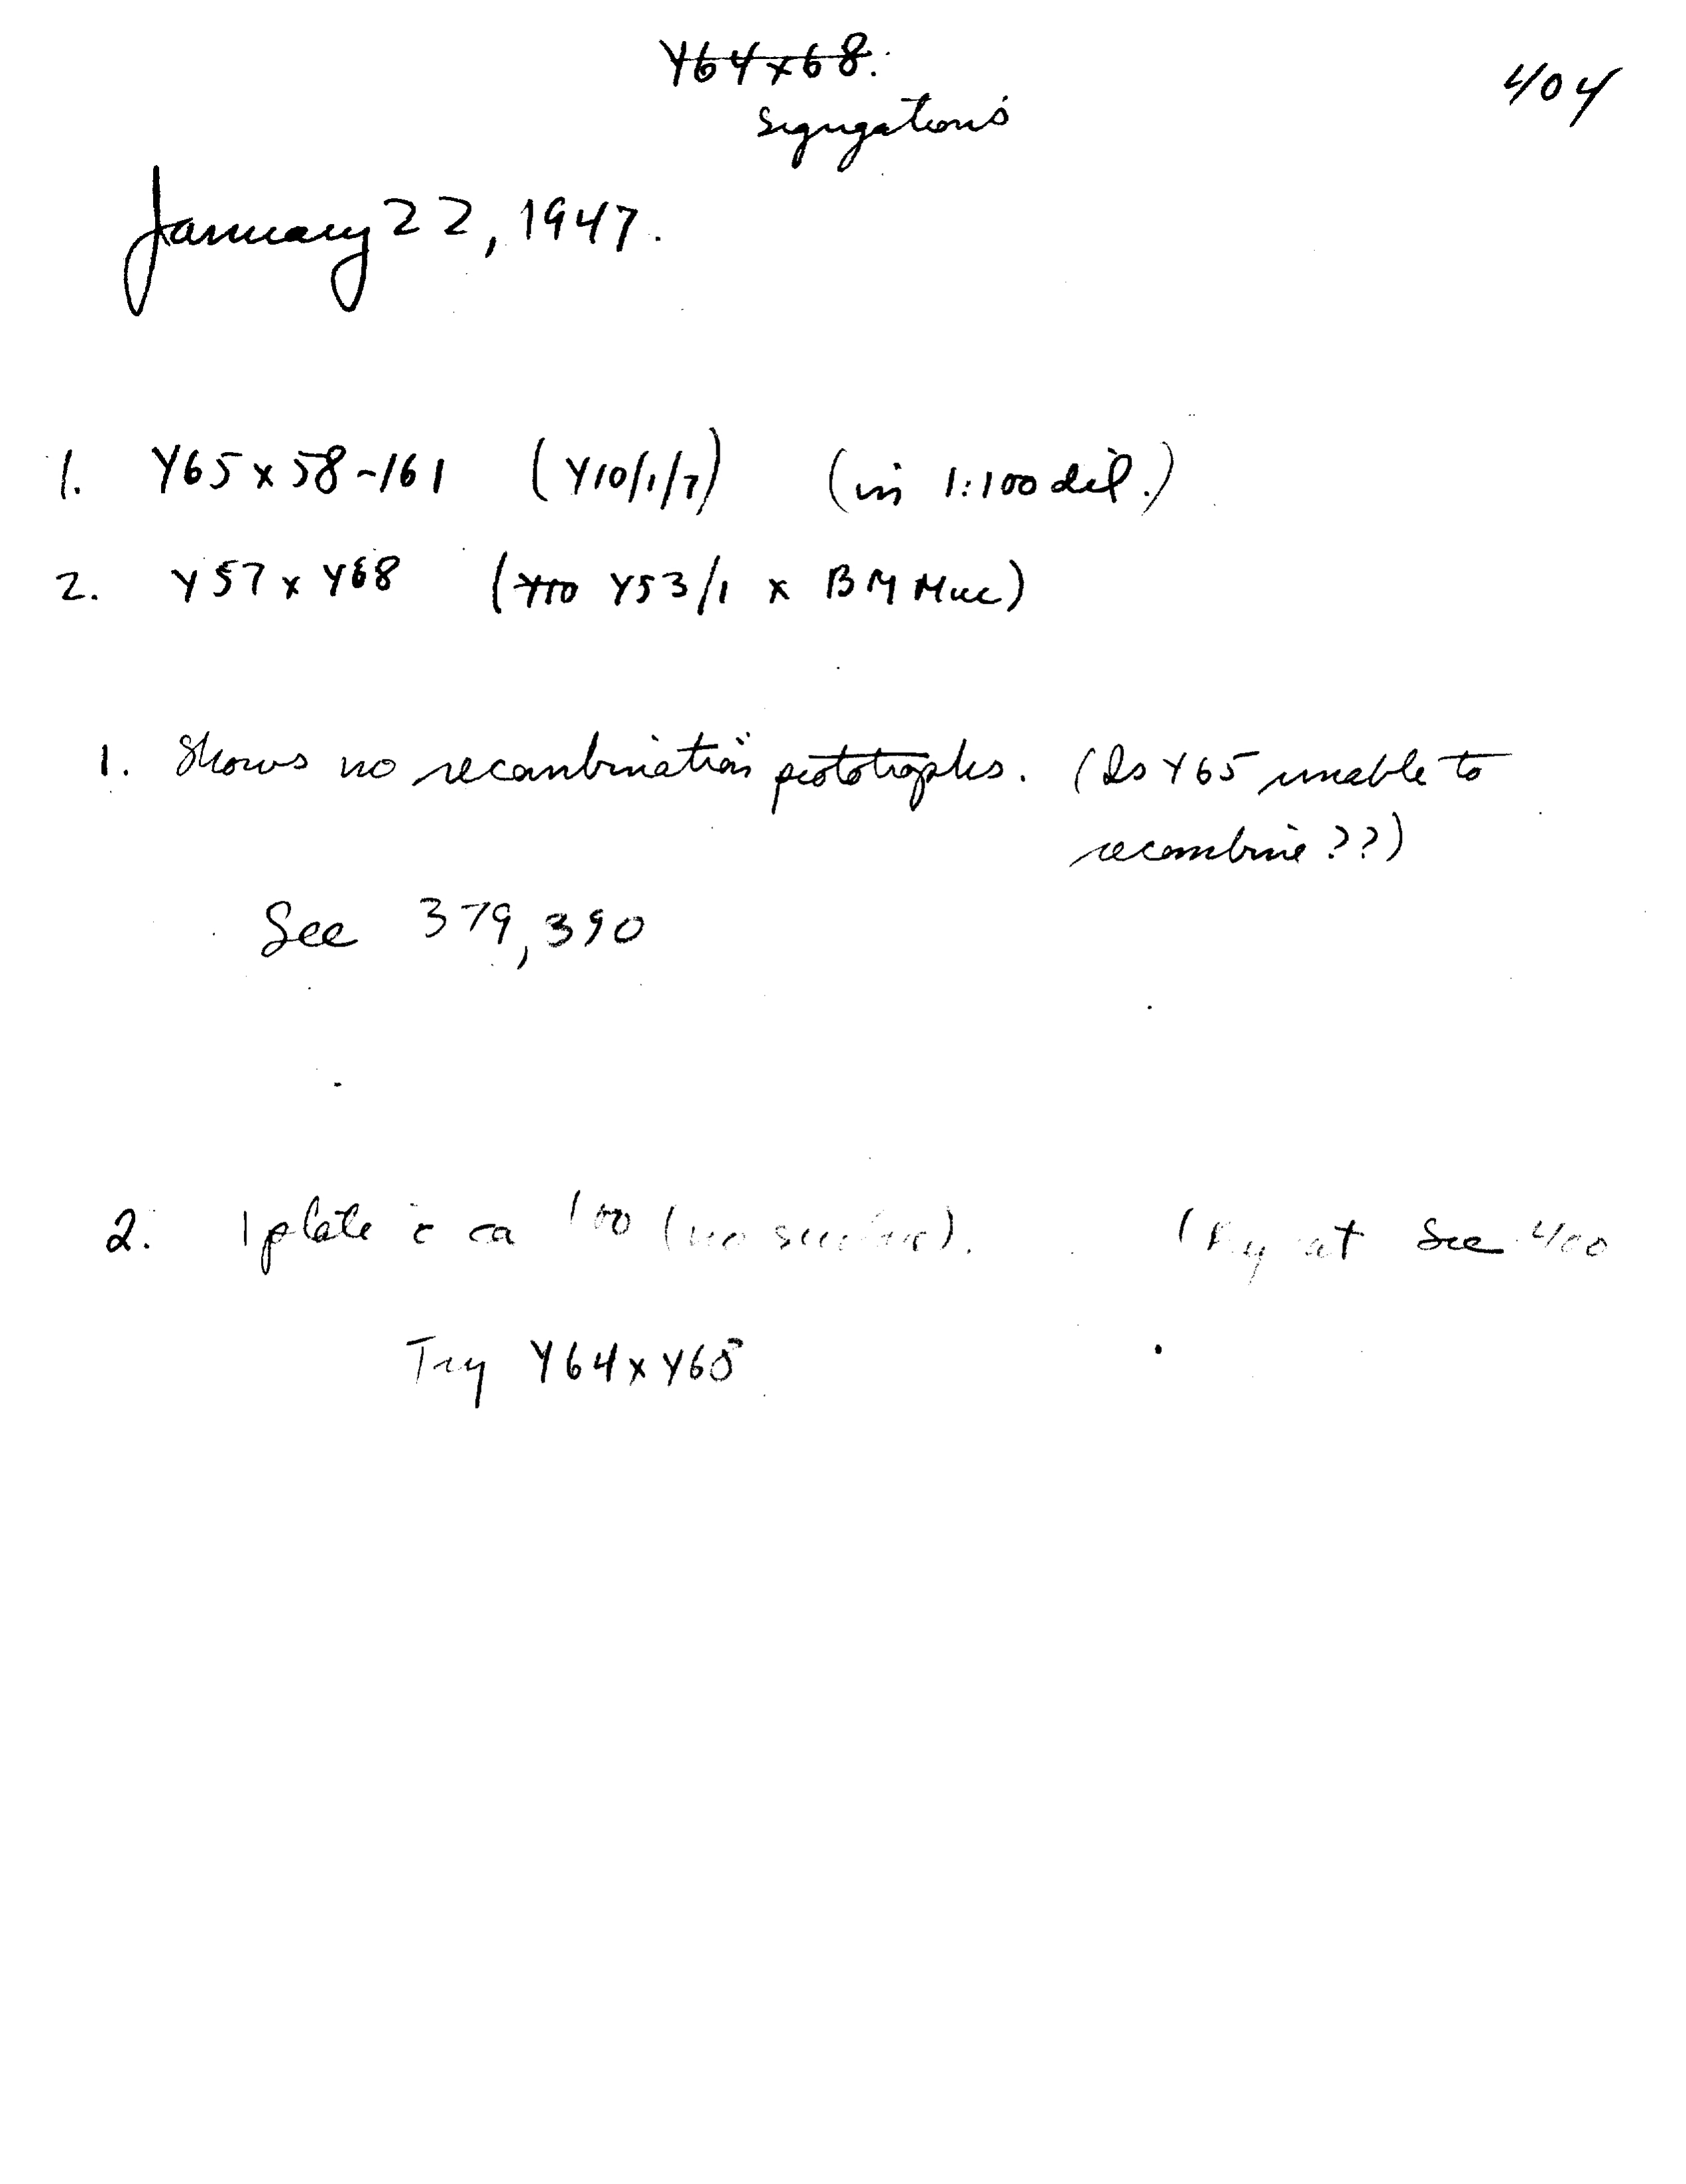 Y64x68.
404
Segregations
January 22, 1947.
1. Y65 x 58-161 (Y10/1/7) (in 1:100 dil.)
2. Y57 x Y68 (Y10 Y53/1 x BM Muc)
1. Shows no recombination prototrophs. (Is Y65 unable to
recombine??)
See 379, 390
2. 1 plate c̄ ca 100 (no). at See 400
Try Y64 x Y68